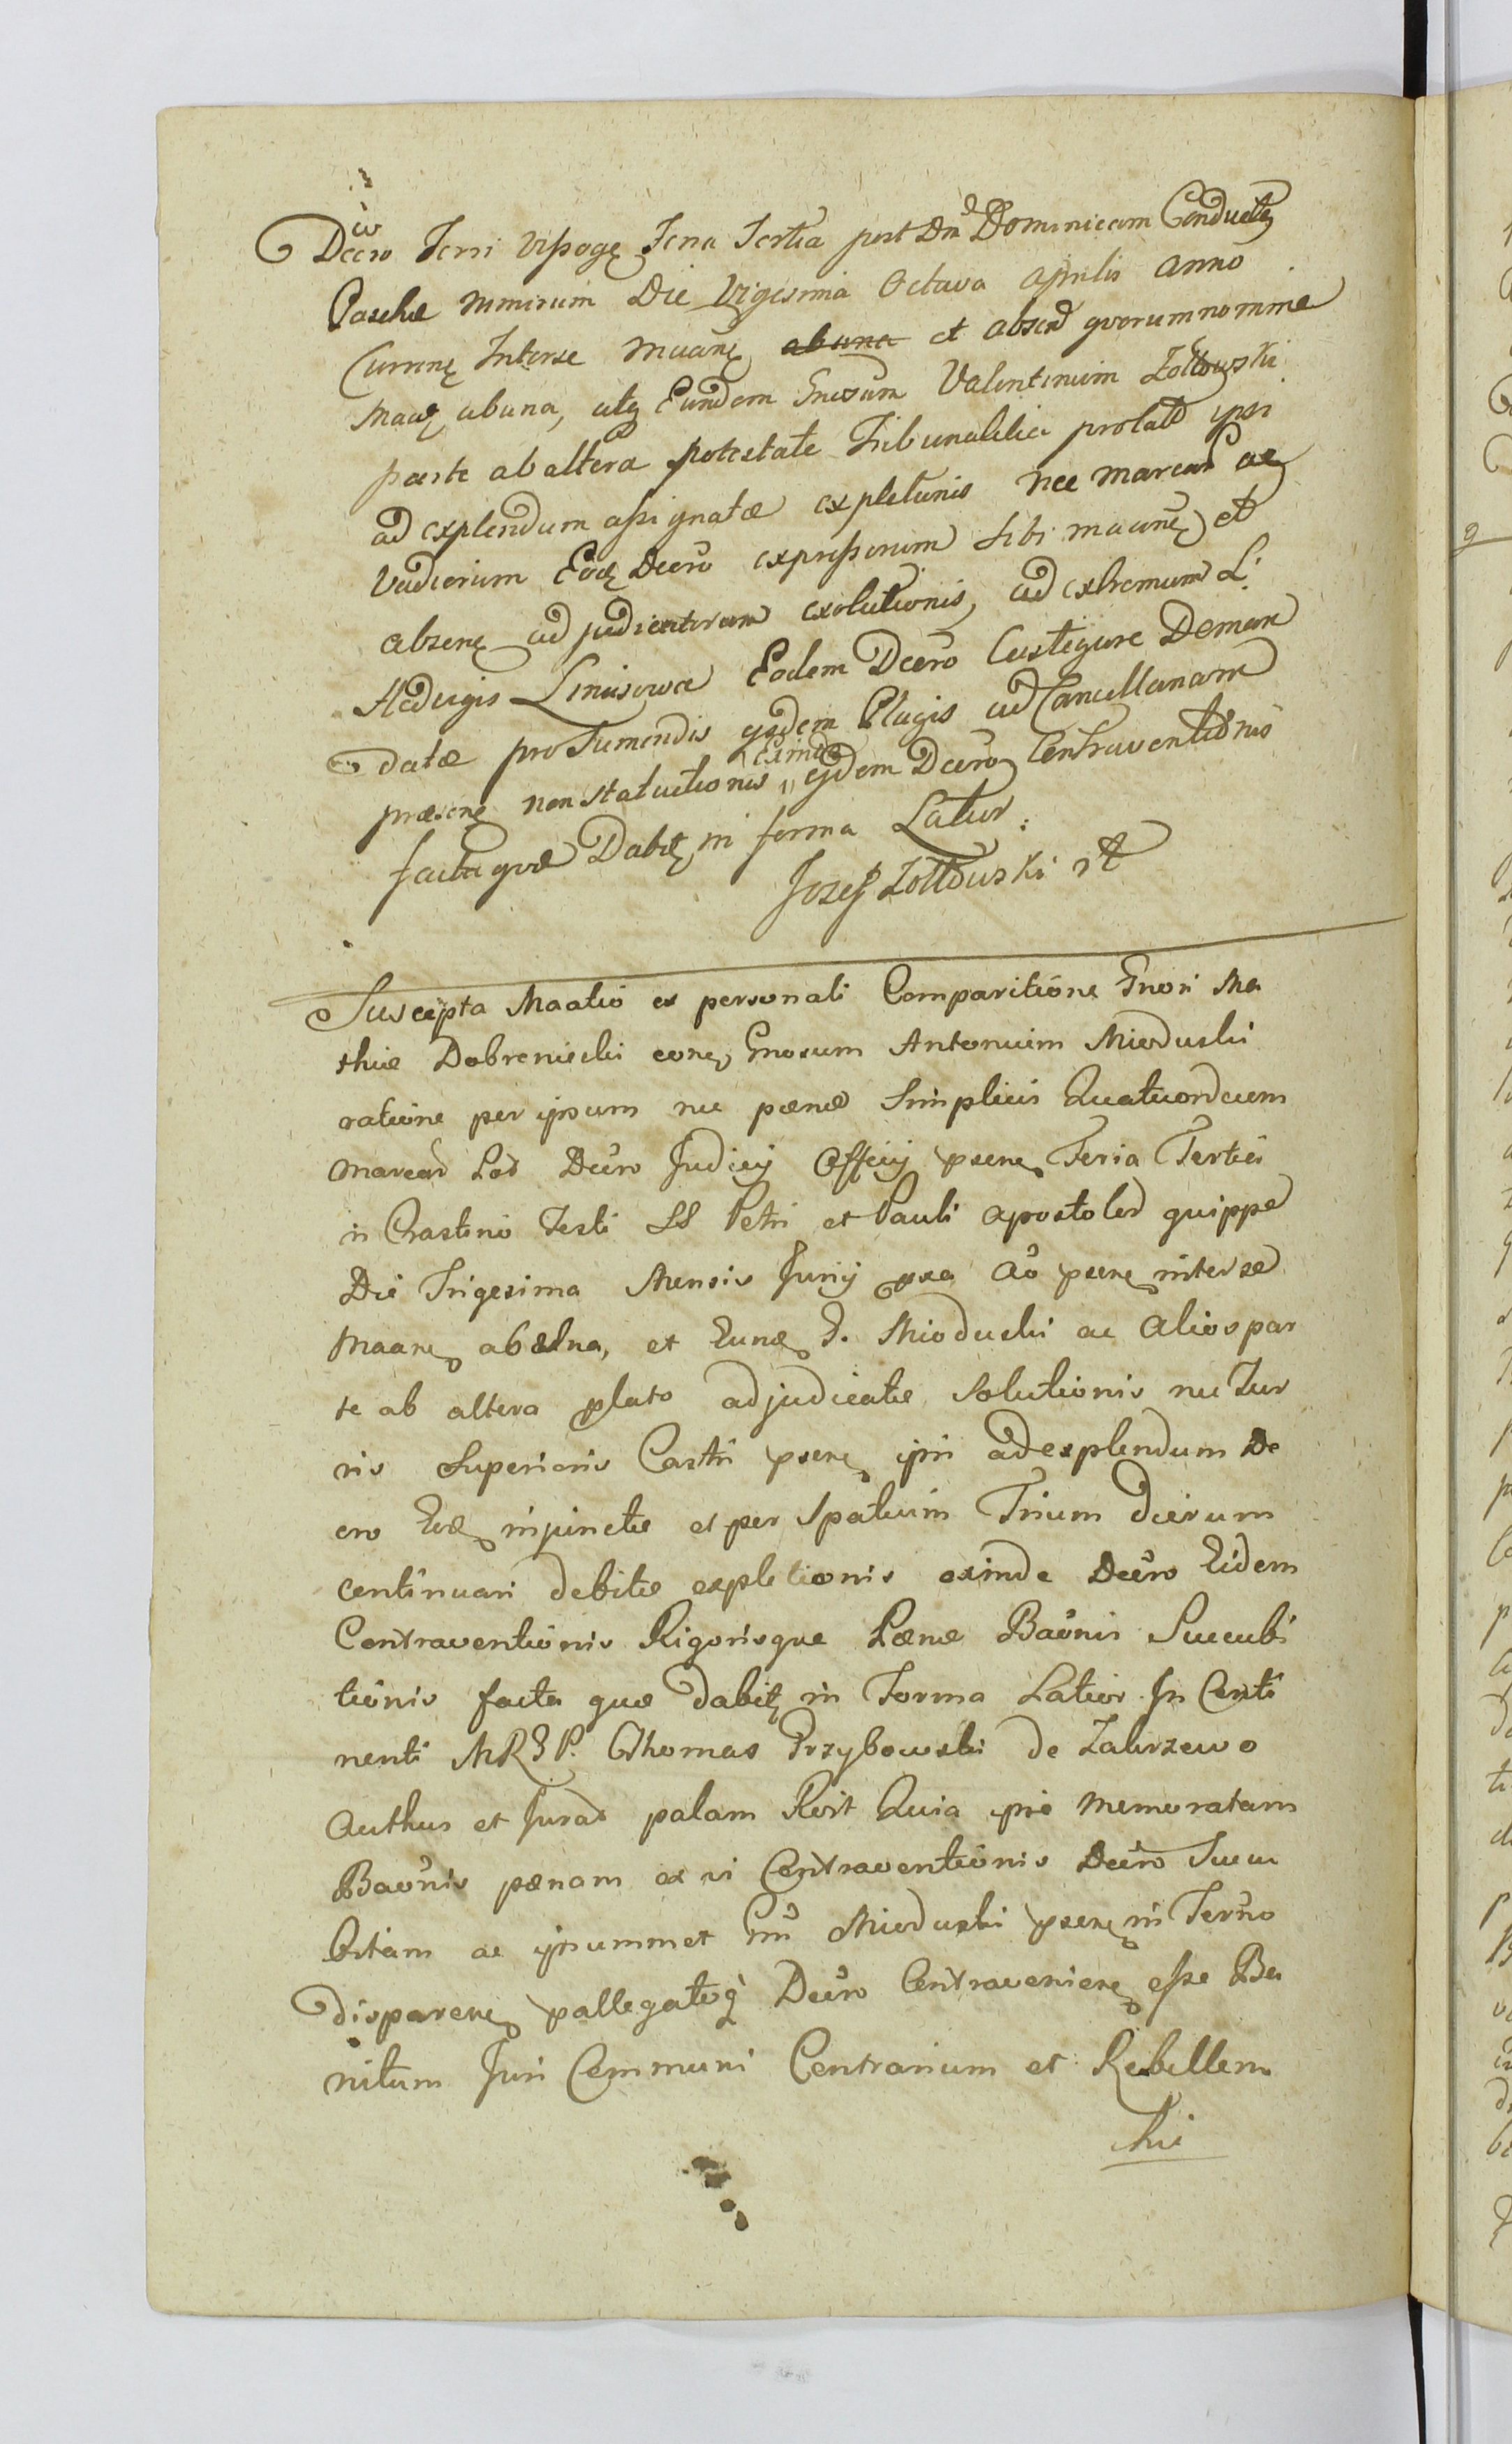 Decro Terri Vissogę Feria Tertia post Dn̄ Dominicam Conductę
Paschæ nimirum Die Vigesima Octava Aprilis anno
Currenę Interse Maanę ab una et absend qvorum nomine
Maaę ab una, atq Eundem Gnosum Valentinum Zołtowski
parte ab altera potestate Tribunalitia prolato ipsi
ad explendum assignatæ expletionis nec marcar ac
Vadiorum Eođ Decro expressorum sibi maanę et
absenę adjudicatarum exolutionis, ad extremum L:
Hedvigis Linusowa Eodem Decro Castigare Deman
datæ pro Sumendis ejsdem Plagis ad Cancellariam
præsenę non statuitionis Exinde ejdem Decro Contraventionis
facta qvæ Dabit in forma Latior:
Jozef Zołtowski mp
Suscepta Maatio ex personali Comparitione Gnosi Ma
thiæ Dobreniecki conę Gnosum Antonium Mioduski
ratione per ipsum nec pænæ Simplicis Quatuordecim
marcar Pol Decro Judicij Officij psenę Feria Tertia
in Crastino Festi SS Petri et Pauli Apostolor quippe
Die Trigesima Mensis Junij pxa Ao psenę interse
Maanę ab una, et Eunđ G. Mioduski ac Alios par
te ab altera plato adjudicatæ Solutionis nec Tur
ris Superioris Castri psenę ipsi ad explendum De
cro Eođ injunctæ et per Spatium Trium Dierum
continuari debitæ expletionis exinde Decro Eidem
Contraventionis Rigorisque Pænæ Baonis Succubi
tionis facta quæ dabit in Forma Latior. In Conti
nenti M R G P. Thomas Grzybowski de Zakrzewo
Authus et Jurad palam Rcit Quia pro memoratam
Baonis pænam ex vi Contraventionis Decro Succu
bitam ac ipsummet Gnũ Mioduski psenę in Terno
disparenę pallegatoq Decro Contravenienę esse Ba
nitum Juri Communi Contrarium et Rebellem
hic